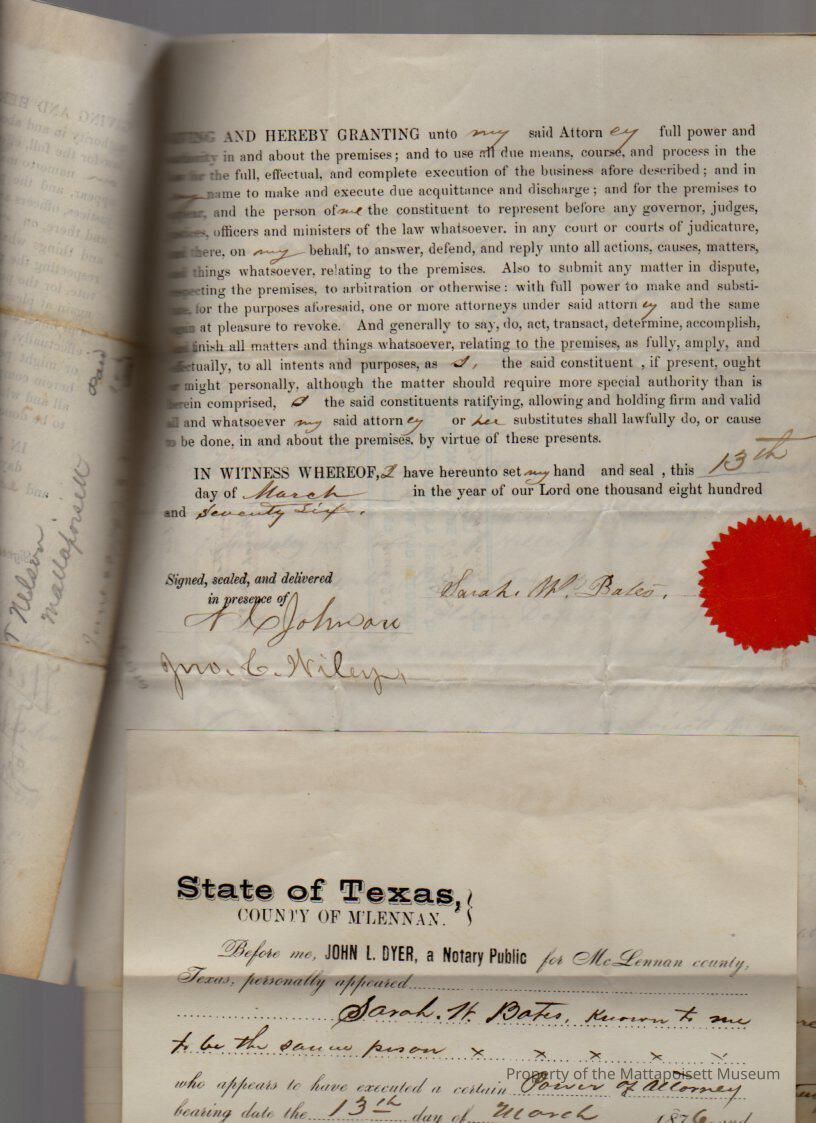 AND HEREBY GRANTING unto my said Attorn ey full power and
in and about the premises; and to use all due means, course, and process in the
for the full, effectual, and complete execution of the business afore described; and in
name to make and execute due acquittance and discharge; and for the premises to
and the person of me the constituent to represent before any governor, judges,
officers and ministers of the law whatsoever. in any court or courts of judicature,
there, on my behalf, to answer, defend, and reply unto all actions, causes, matters,
things whatsoever, relating to the premises. Also to submit any matter in dispute,
the premises, to arbitration or otherwise: with full power to make and substi-
for the purposes aforesaid, one or more attorneys under said attorn ey and the same
at pleasure to revoke. And generally to say, do, act, transact, determine, accomplish,
finish all matters and things whatsoever, relating to the premises, as fully, amply, and
to all intents and purposes, as I, the said constituent , if present, ought
might personally, although the matter should require more special authority than is
comprised, I the said constituents ratifying, allowing and holding firm and valid
and whatsoever my said attorn ey or her substitutes shall lawfully do, or cause
to be done, in and about the premises, by virtue of these presents.
IN WITNESS WHEREOF, I have hereunto set my hand and seal , this 13th
day of March in the year of our Lord one thousand eight hundred
and Seventy Six.
Signed, sealed, and delivered
in presence of
Sarah. W. Bates.
Johnson
Jno. C. Wiley,
Nelson
Mattapoisett
State of Texas,
COUNTY OF M'LENNAN.
Before me, JOHN L. DYER, a Notary Public for McLennan county,
Texas, personally appeared
Sarah. W. Bates, Known to me
to be the same person x x x x x
who appears to have executed a certain Power of Attorney
bearing date the 13th day of March 1876 and
Property of the Mattapoisett Museum